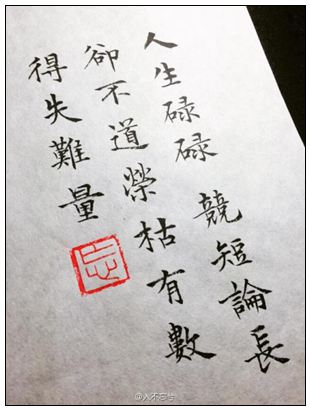 人生碌碌 競短論長
卻不道榮枯有數
得失難量
忘